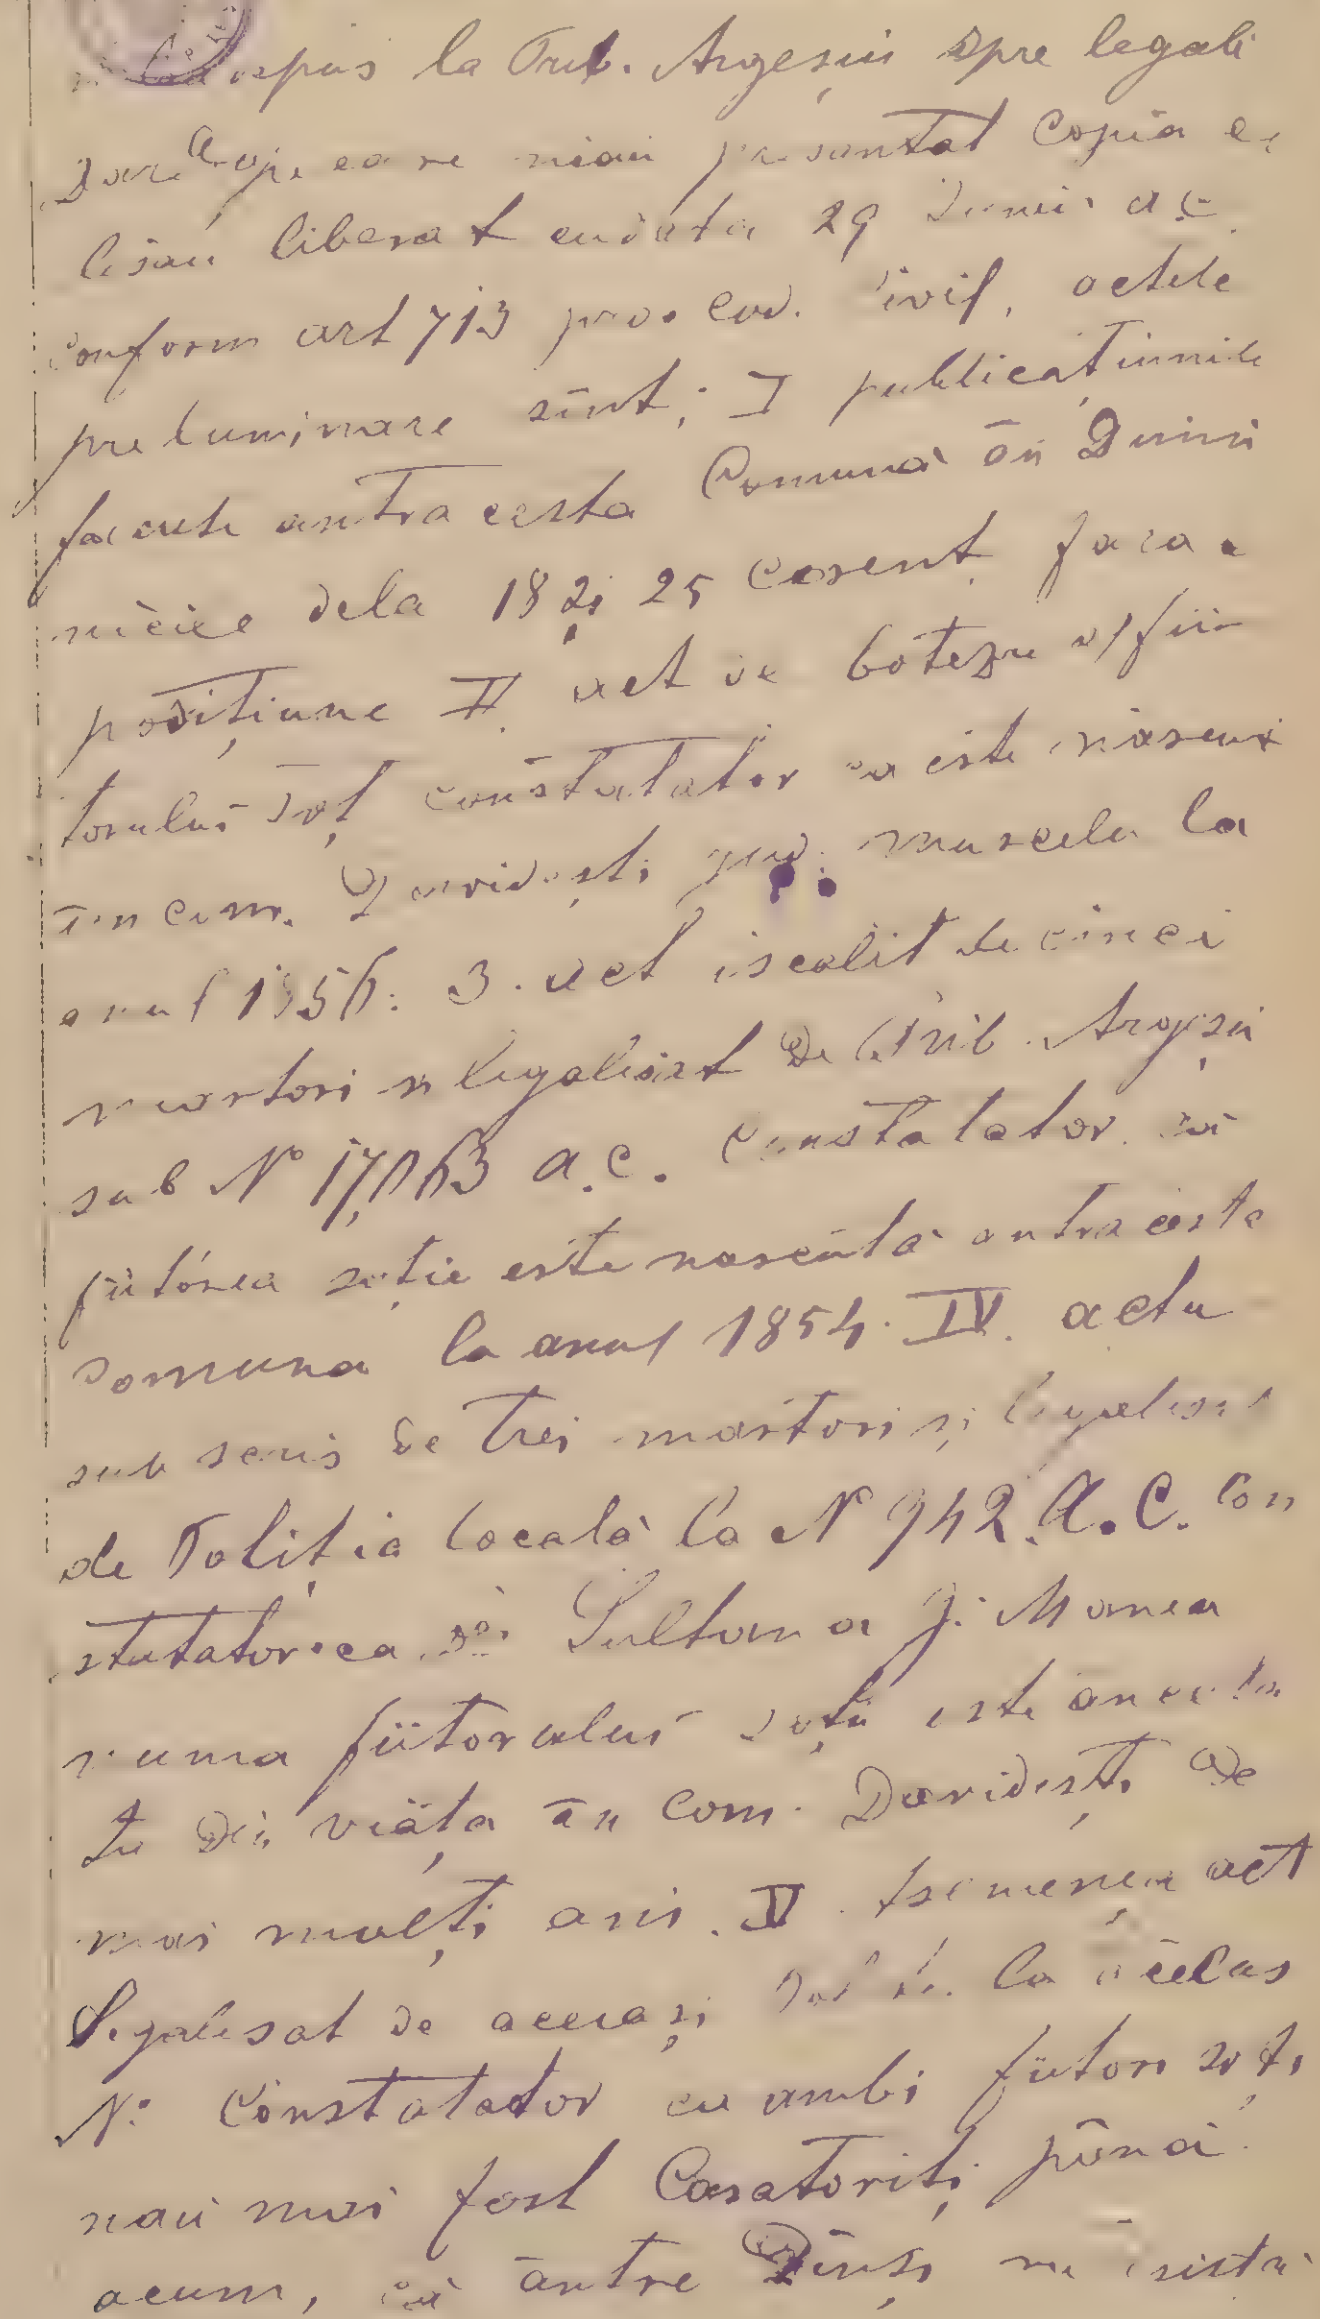 depus la Trib. Argeșiu spre legali
Dare a op. care miau presantat Copia ce
lisau liberat cu data 29 Iunii a.c.
conform art 713 pro. Cod. Civil, actele
preluminare sînt; I publicațiunile
facute antracesta Comună ān Dumi
nicile dela 18 și 25 Corent fara o
posițiune II. act de botezu al fiii
torului soț constatator ca este născut
īn Com. Davidești jud. muscelu la
anul 1856: 3. act iscalit de cinci
martori și legalisat De Trib. Argeșiu
sub No 17,063 a.c. constatator că
fiitórea soție este nascută antraciasta
Comuna la anul 1854. IV. actu
sub scris de trei martori și legalisat
de Poliția locală la No 942. A.C. Con
statator ca Sultana J. Manea
muma fiitorului soțu este anceta
tu Din viața ān Com. Davidești De
mai mulți ani. V. Asemenea act
Legalisat de aceeași la acelas
No: Constatator cu ambi fiitori soți
nau mai fost Casatoriți pōnă
acum, că āntre Dinși nu esistă